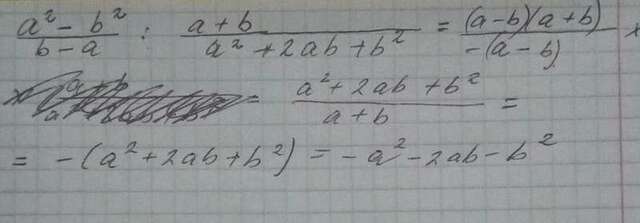 (a² - b²)/(b - a) : (a + b)/(a² + 2ab + b²) = ((a-b)(a+b))/(-(a-b)) ×
= (a² + 2ab + b²)/(a + b) =
= -(a² + 2ab + b²) = -a² - 2ab - b²